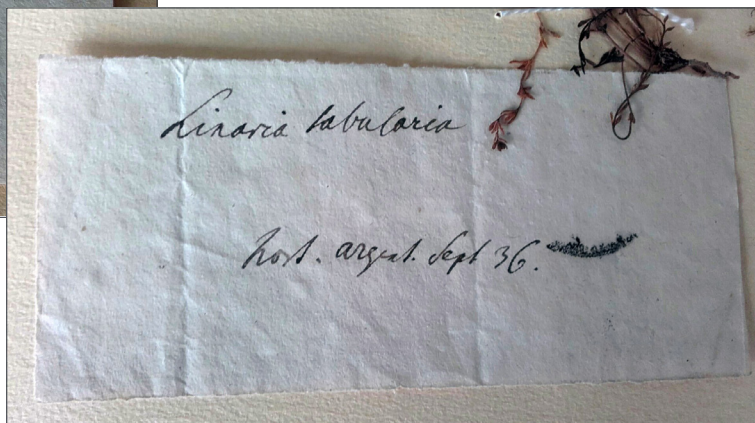 Linaria tabularia
hort. argent. Sept 36.